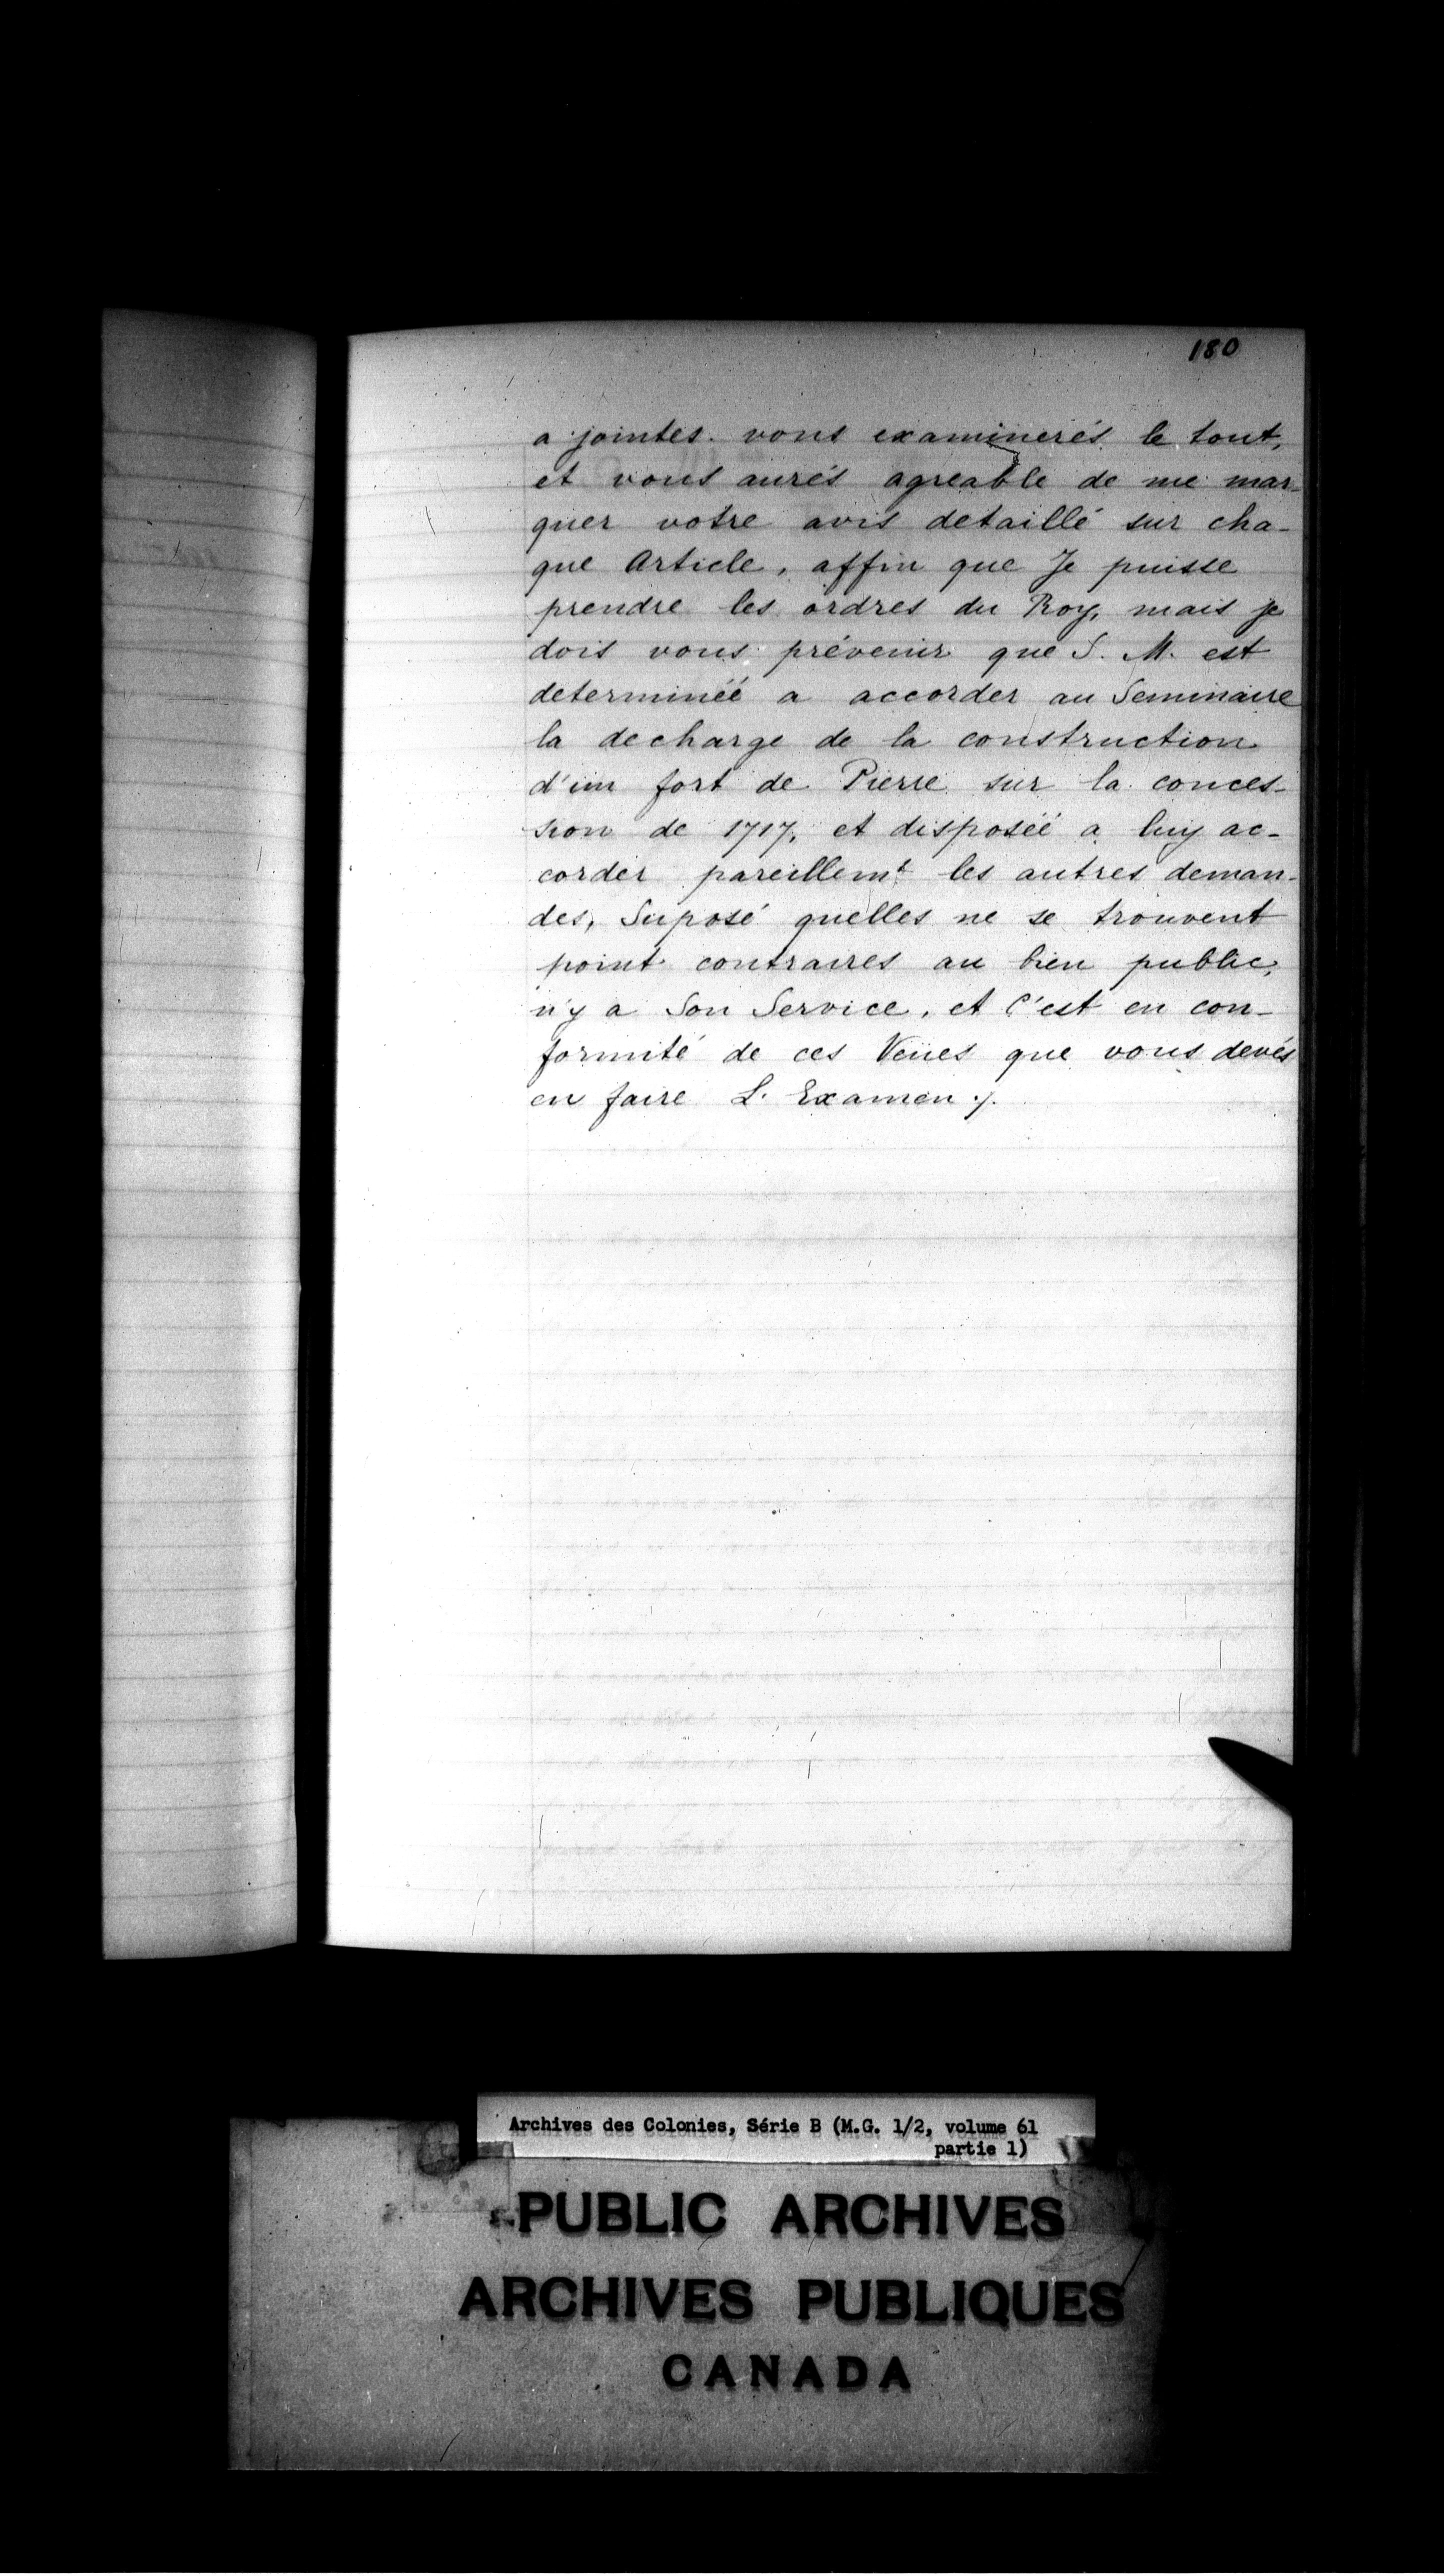 180
a jointes. vous examinerés le tout,
et vous aurés agreable de me mar-
quer votre avis detaillé sur cha-
que Article, affin que Je puisse
prendre les ordres du Roy, mais je
dois vous prévenir que S. M. est
determinéé a accorder au Seminaire
la decharge de la construction
d'un fort de Pierre sur la conces-
sion de 1717, et disposéé a luy ac-
corder pareillemt les autres deman-
des, Suposé quelles ne se trouvent
point contraires au bien public,
n'y a Son Service, et C'est en con-
formité de ces Veües que vous devés
en faire L. Examen ./.
Archives des Colonies, Série B (M.G. 1/2, volume 61
partie 1)
PUBLIC ARCHIVES
ARCHIVES PUBLIQUES
CANADA